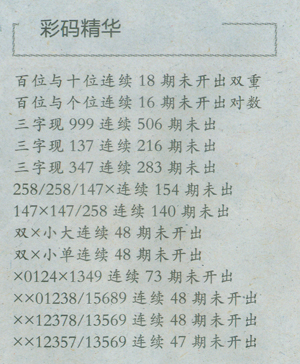 彩码精华
百位与十位连续 18 期未开出双重
百位与个位连续 16 期未开出对数
三字现 999 连续 506 期未出
三字现 137 连续 216 期未出
三字现 347 连续 283 期未出
258/258/147×连续 154 期未出
147×147/258 连续 140 期未出
双×小大连续 48 期未开出
双×小单连续 48 期未开出
×0124×1349 连续 73 期未开出
××01238/15689 连续 48 期未开出
××12378/13569 连续 48 期未开出
××12357/13569 连续 47 期未开出